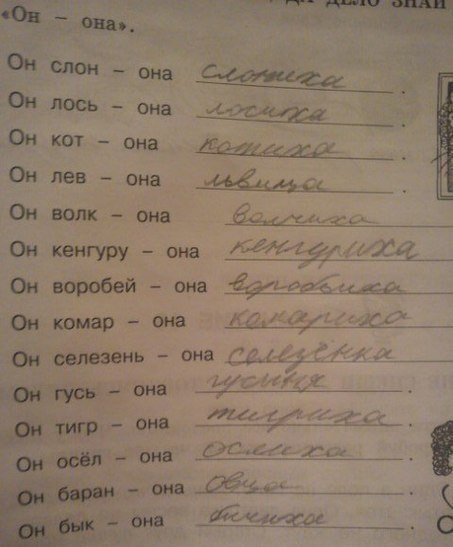 ДЕЛО ЗНАЙ
«Он – она».
Он слон – она слониха.
Он лось – она лосиха.
Он кот – она котиха.
Он лев – она львица.
Он волк – она волчиха
Он кенгуру – она кенгуриха
Он воробей – она воробьиха
Он комар – она комариха
Он селезень – она селезёнка
Он гусь – она гусыня.
Он тигр – она тигриха.
Он осёл – она ослиха.
Он баран – она овца.
Он бык – она бычиха.